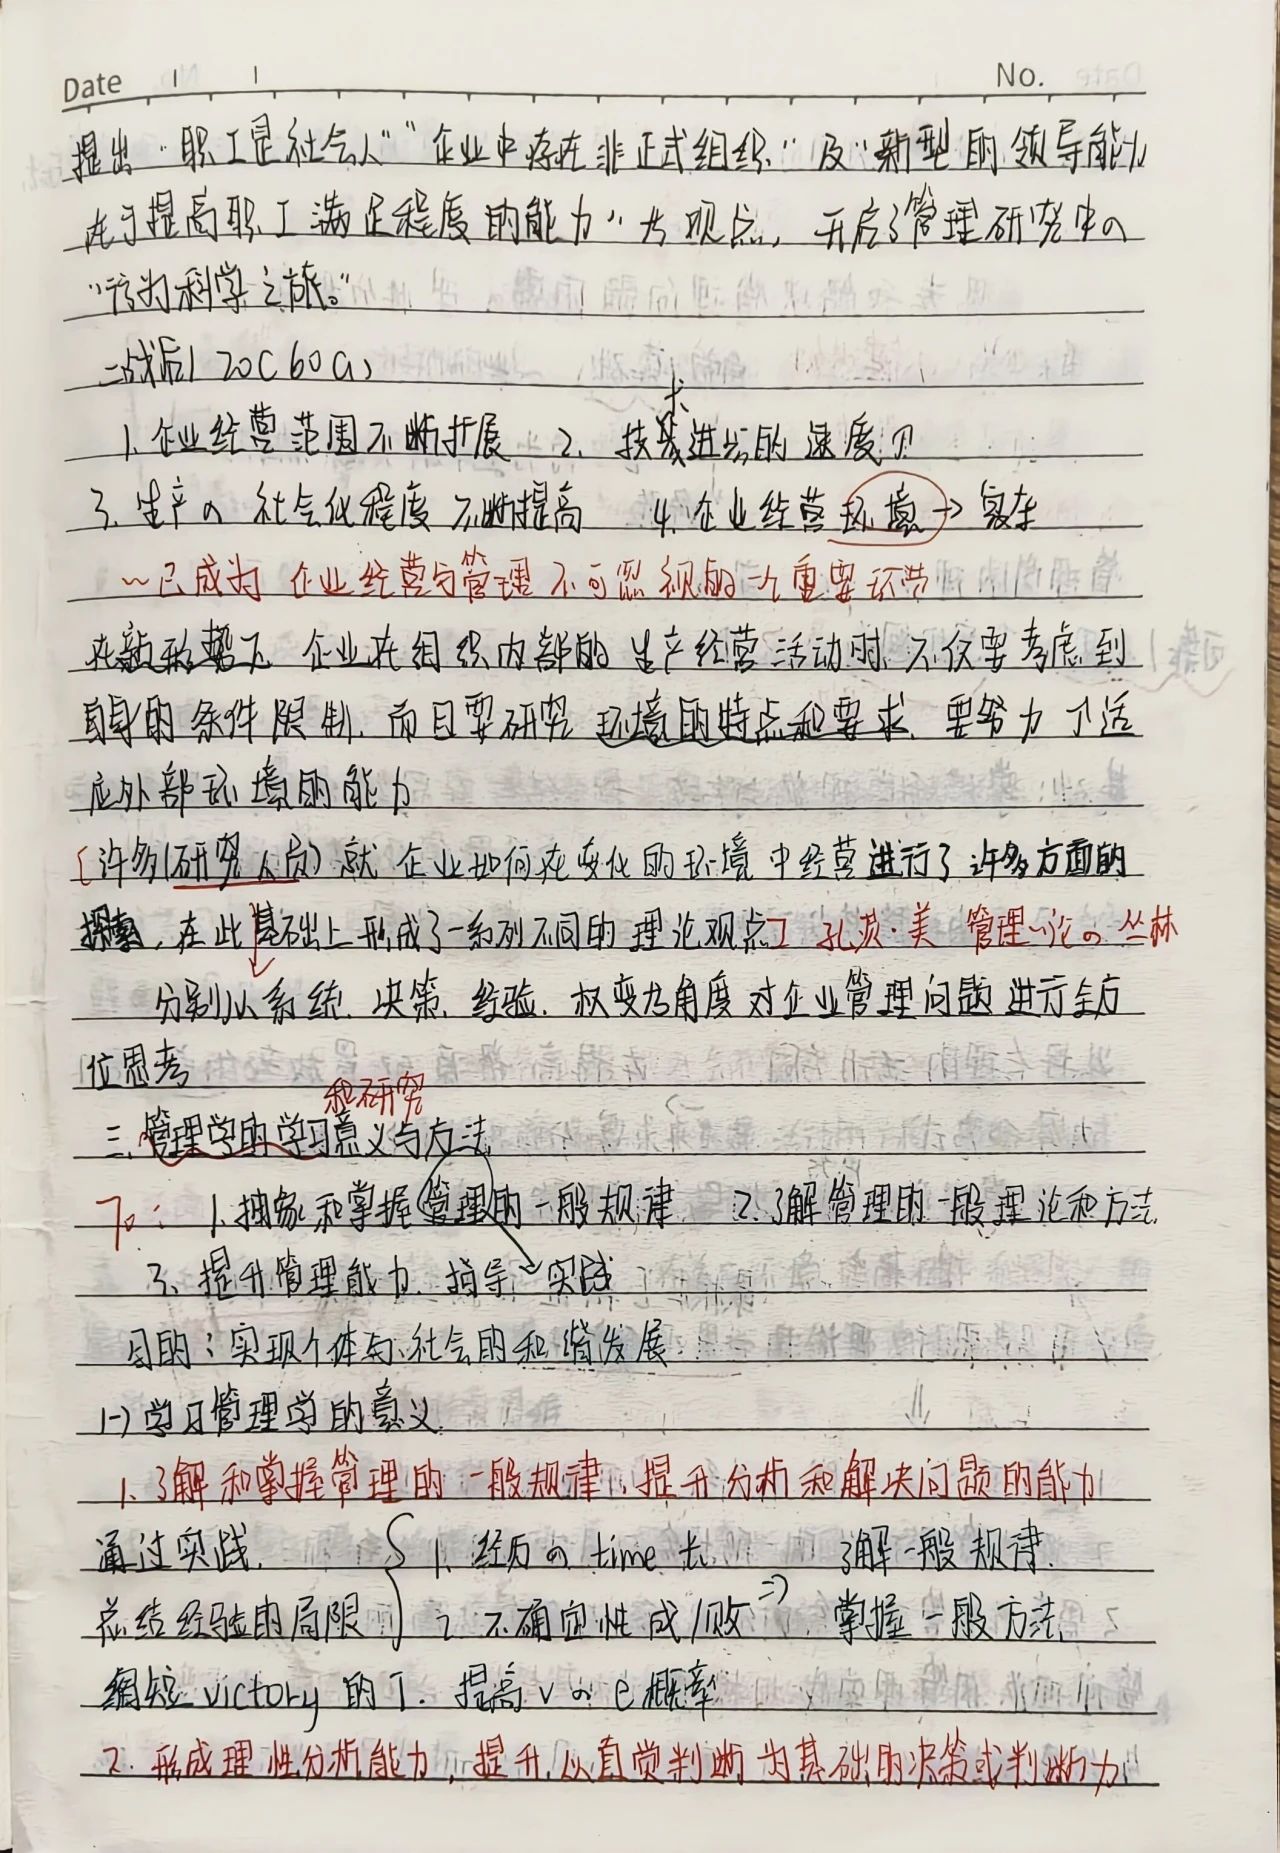 Date
No.
提出"职工是社会人""企业中存在非正式组织"及"新型的领导能力
在于提高职工满足程度的能力"为观点，开启了管理研究中の
"行为科学之旅。"
二战后 20C 60a,
1. 企业经营范围不断扩展 2. 技术进步的速度
3. 生产の社会化程度不断提高 4. 企业经营环境→复杂
~已成为企业经营与管理不可忽视的一个重要环节
在新形势下 企业在组织内部的生产经营活动时，不仅要考虑到
自身的条件限制，而且要研究环境的特点和要求，要努力了适
应外部环境的能力
[许多(研究人员)就企业如何在变化的环境中经营进行了许多方面的
探索，在此基础上形成了一系列不同的理论观点] 孔茨·美 管理~论の丛林
分别从系统、决策、经验、权变为角度对企业管理问题进行全方
位思考
和研究
三、管理学的学习意义与方法
To: 1. 抽象和掌握管理的一般规律 2. 了解管理的一般理论和方法
3. 提升管理能力、指导~实践
目的：实现个体与社会的和谐发展
(-)学习管理学的意义
1. 了解和掌握管理的一般规律，提升分析和解决问题的能力
通过实践 { 1. 经历の time 长 了解一般规律
总结经验的局限 2. 不确定性成/败 => 掌握一般方法
缩短 victory 的T. 提高 v の e 概率
2. 形成理性分析能力，提升以直觉判断为基础的决策或判断力